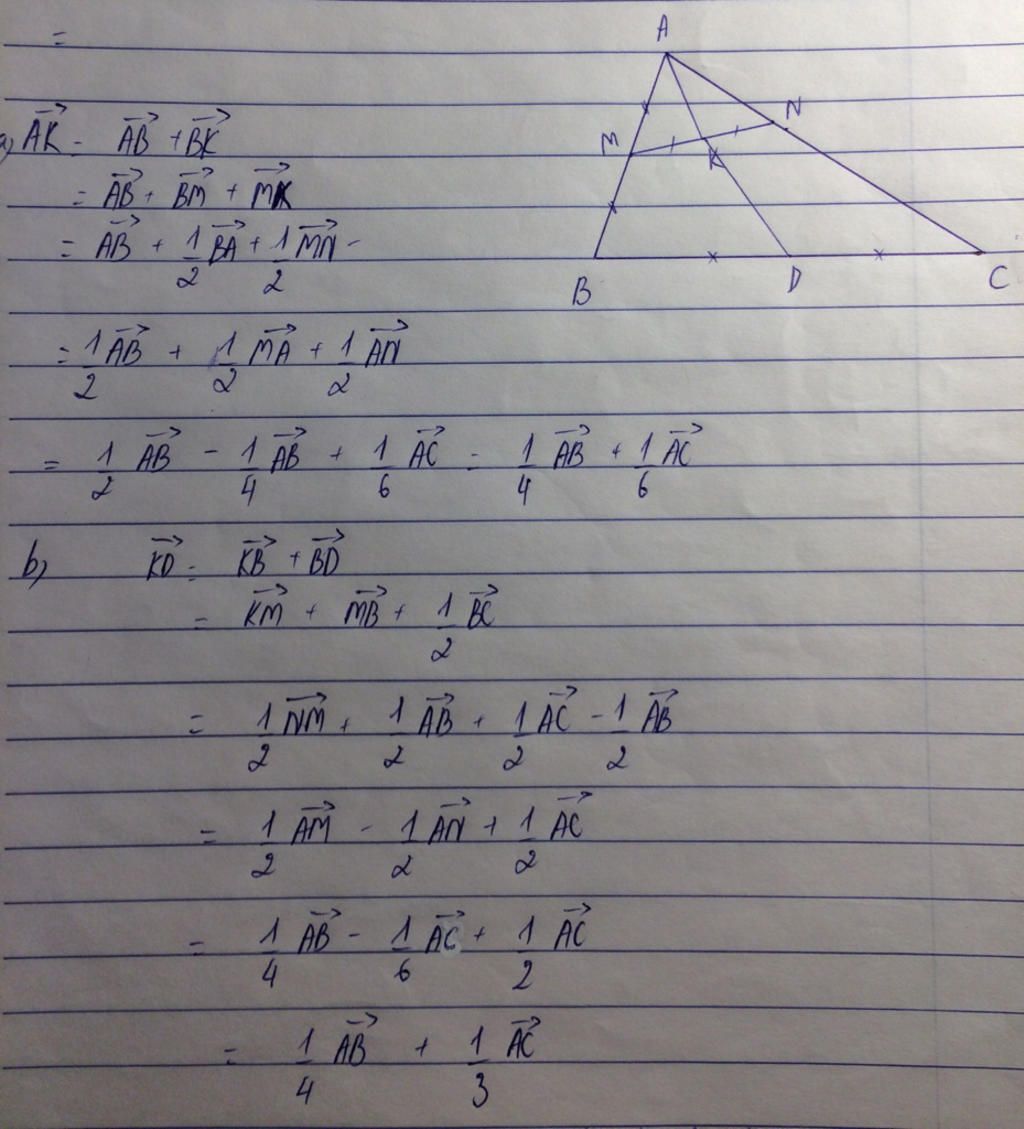 =
a) $\overrightarrow{AK} = \overrightarrow{AB} + \overrightarrow{BK}$
$= \overrightarrow{AB} + \overrightarrow{BM} + \overrightarrow{MK}$
$= \overrightarrow{AB} + \frac{1}{2}\overrightarrow{BA} + \frac{1}{2}\overrightarrow{MN}$ -
$= \frac{1}{2}\overrightarrow{AB} + \frac{1}{2}\overrightarrow{MA} + \frac{1}{2}\overrightarrow{AN}$
$= \frac{1}{2}\overrightarrow{AB} - \frac{1}{4}\overrightarrow{AB} + \frac{1}{6}\overrightarrow{AC} = \frac{1}{4}\overrightarrow{AB} + \frac{1}{6}\overrightarrow{AC}$
b) $\overrightarrow{KD} = \overrightarrow{KB} + \overrightarrow{BD}$
$= \overrightarrow{KM} + \overrightarrow{MB} + \frac{1}{2}\overrightarrow{BC}$
$= \frac{1}{2}\overrightarrow{NM} + \frac{1}{2}\overrightarrow{AB} + \frac{1}{2}\overrightarrow{AC} - \frac{1}{2}\overrightarrow{AB}$
$= \frac{1}{2}\overrightarrow{AM} - \frac{1}{2}\overrightarrow{AN} + \frac{1}{2}\overrightarrow{AC}$
$= \frac{1}{4}\overrightarrow{AB} - \frac{1}{6}\overrightarrow{AC} + \frac{1}{2}\overrightarrow{AC}$
$= \frac{1}{4}\overrightarrow{AB} + \frac{1}{3}\overrightarrow{AC}$
A
M
N
K
B
D
C